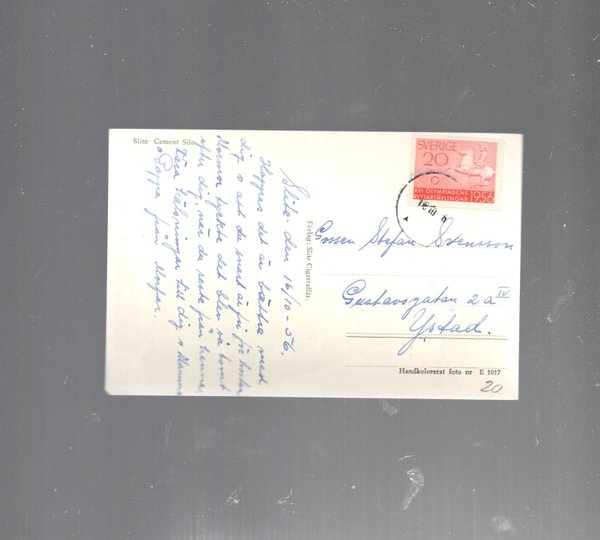 Slite Cement Silo
Slite den 16/10-56.
Hoppas det är bättre med
dig o att du snart är fri från hostan
Mormor tyckte det blev så tomt
efter dig, när du reste från henne.
Kära hälsningar till dig o Mamma
o Pappa från Morfar.
Förlag: Slite Cigarraffär.
SVERIGE
20
XVI OLYMPIADENS
RYTTARTÄVLINGAR 1956
Gossen Stefan Svensson
Gustavsgatan 2 a IV
Ystad.
Handkolorerat foto nr E 1017
20